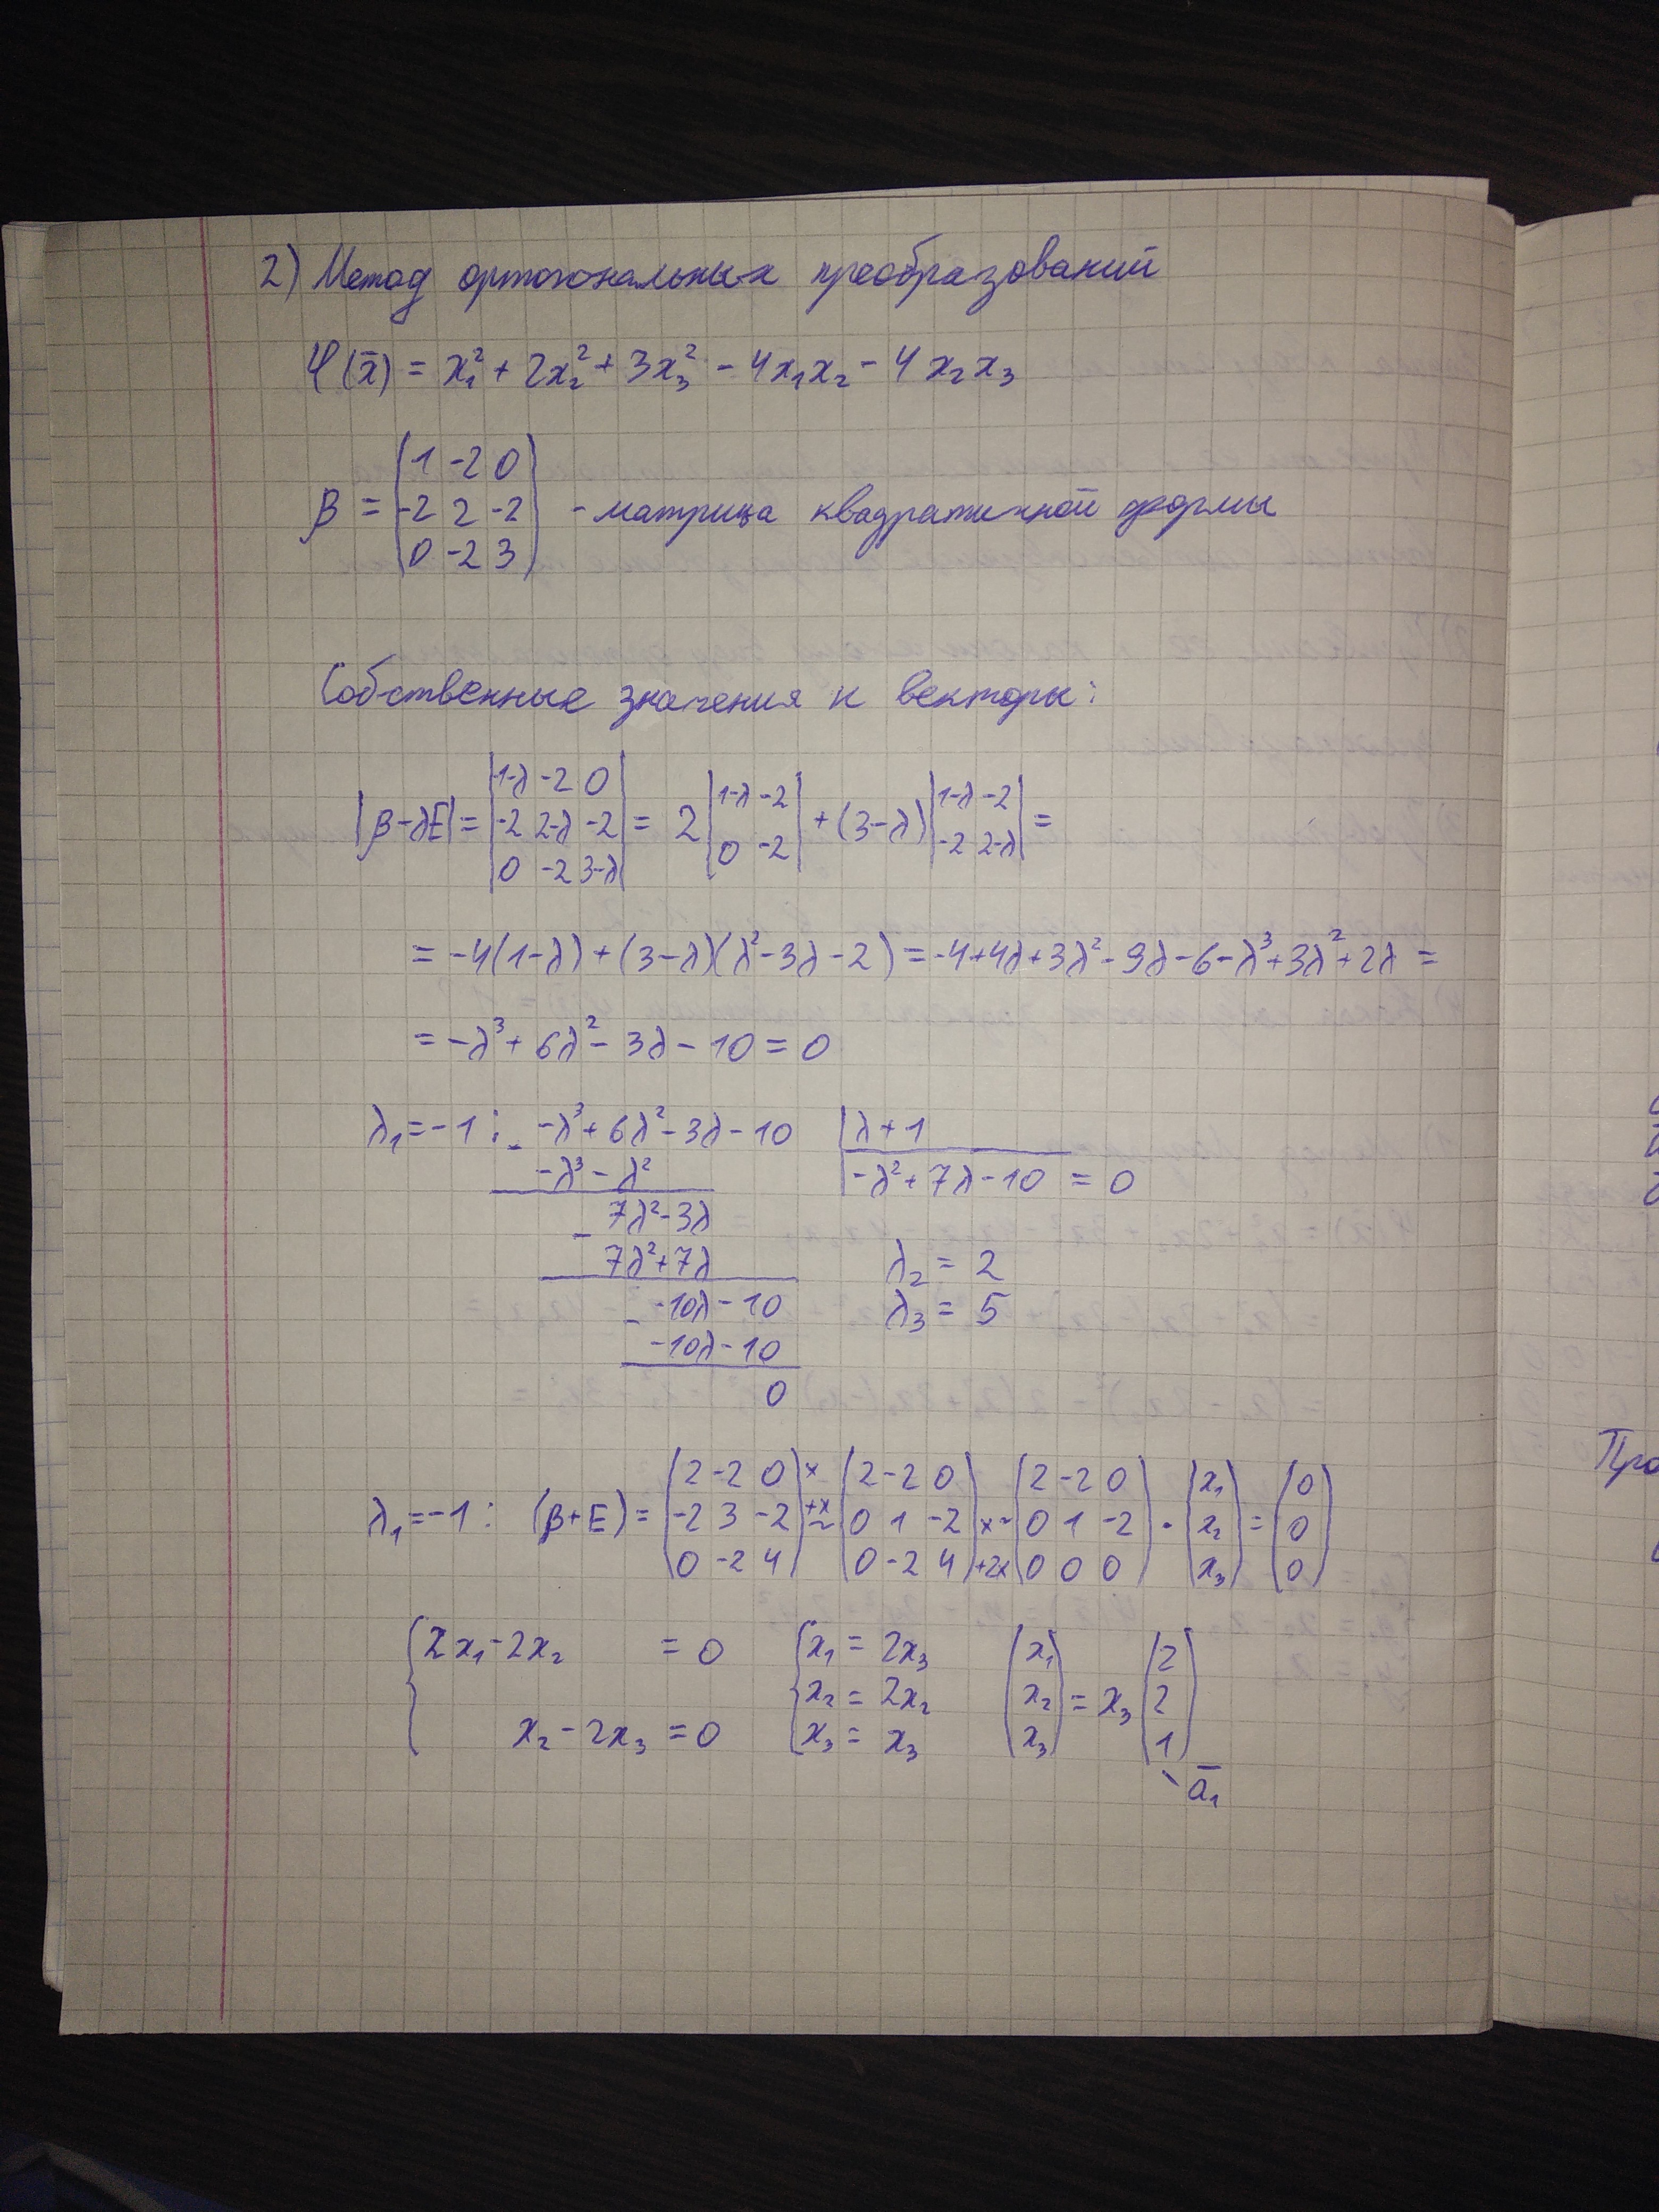 2) Метод ортогональных преобразований
φ(x̄) = x₁² + 2x₂² + 3x₃² - 4x₁x₂ - 4x₂x₃
β = (1 -2 0; -2 2 -2; 0 -2 3) - матрица квадратичной формы
Собственные значения и векторы:
|β-λE| = |1-λ -2 0; -2 2-λ -2; 0 -2 3-λ| = 2 |1-λ -2; 0 -2| + (3-λ) |1-λ -2; -2 2-λ| =
= -4(1-λ) + (3-λ)(λ²-3λ-2) = -4+4λ+3λ²-9λ-6-λ³+3λ²+2λ =
= -λ³ + 6λ² - 3λ - 10 = 0
λ₁=-1 : - -λ³+6λ²-3λ-10 |λ+1
-λ³ - λ² |-λ²+7λ-10 = 0
- 7λ²-3λ
7λ²+7λ λ₂ = 2
- -10λ-10 λ₃ = 5
-10λ-10
0
λ₁=-1 : (β+E) = (2 -2 0; -2 3 -2; 0 -2 4) x +x ~ (2 -2 0; 0 1 -2; 0 -2 4) x ~ +2x (2 -2 0; 0 1 -2; 0 0 0) · (x₁; x₂; x₃) = (0; 0; 0)
{2x₁-2x₂ = 0 {x₁ = 2x₃ (x₁; x₂; x₃) = x₃ (2; 2; 1)
x₂ = 2x₂
x₂-2x₃ = 0 x₃ = x₃
ā₁
Про